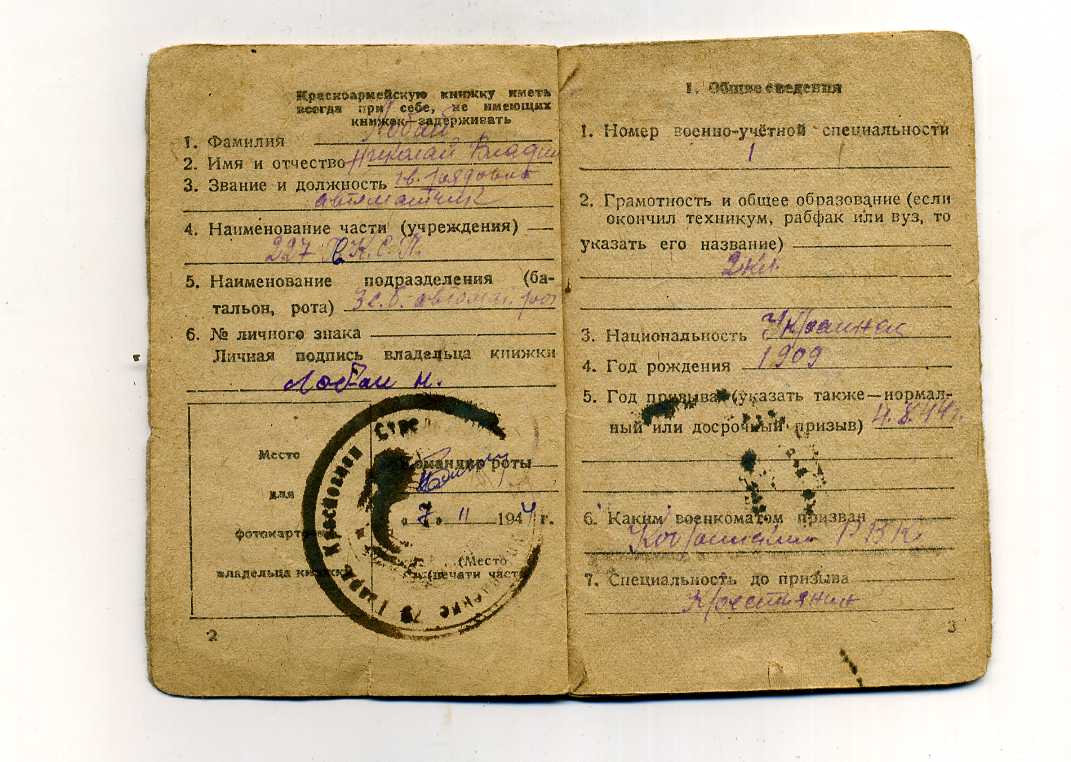 Красноармейскую книжку иметь
всегда при себе, не имеющих
книжек задерживать
1. Фамилия Лобан
2. Имя и отчество Николай Влади
3. Звание и должность гв. рядовой
автоматчик
4. Наименование части (учреждения)
227 К.С.П.
5. Наименование подразделения (ба-
тальон, рота) 3 с.б. автомат. рот
6. № личного знака
Личная подпись владельца книжки
Лобан Н.
Место
для
фотокарточ
владельца книжки
Командир роты
„7„ 11 1944 г.
(Место
печати части
Гвард. Краснознам Стрел
2
1. Общие сведения
1. Номер военно-учётной специальности
1
2. Грамотность и общее образование (если
окончил техникум, рабфак или вуз, то
указать его название)
2 кл.
3. Национальность Украинец
4. Год рождения 1909
5. Год призыва (указать также—нормаль-
ный или досрочный призыв) 4.8.44г.
6. Каким военкоматом призван
Кобринским РВК
7. Специальность до призыва
Крестьянин
3